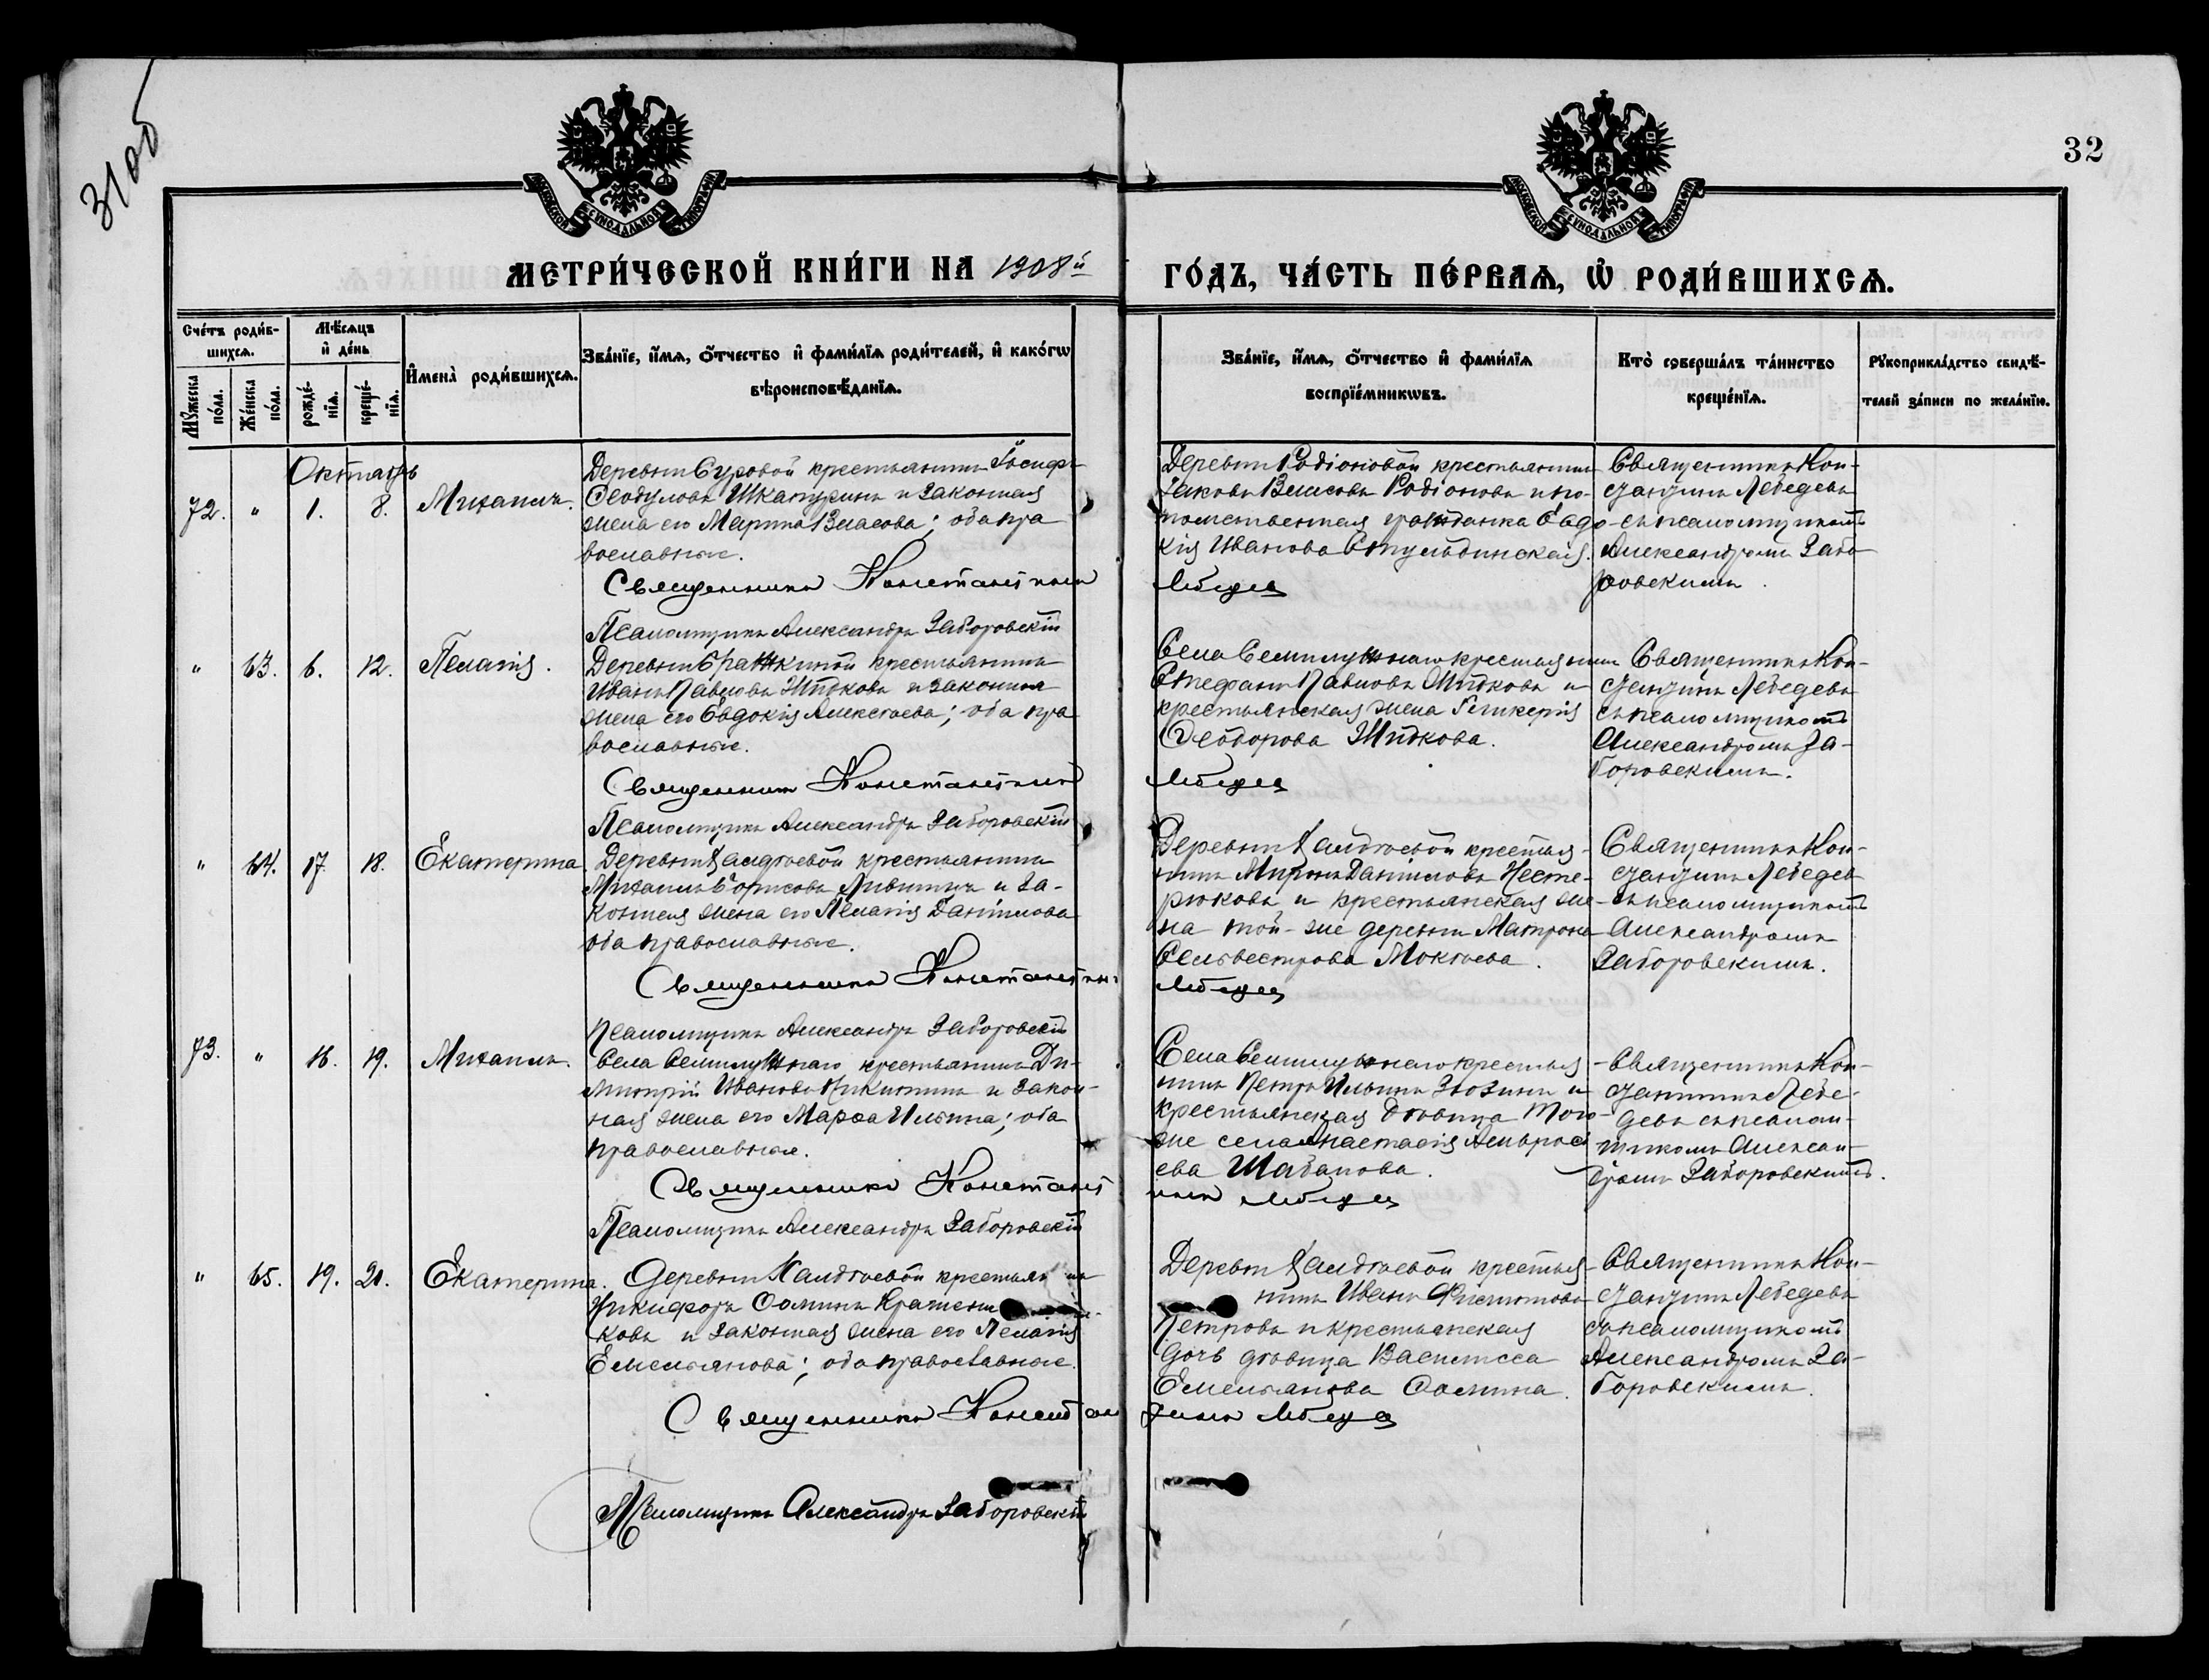 31об
32
МОСКОВСКОЙ СѴНОДАЛЬНОЙ ТИПОГРАФІИ
МОСКОВСКОЙ СѴНОДАЛЬНОЙ ТИПОГРАФІИ
МЕТРИ́ЧЕСКОЙ КНИ́ГИ НА 1908й
ГО́ДЪ, ЧА́СТЬ ПЕ́РВАѦ, Ѡ҆ РОДИ́ВШИХСѦ.
Сче́тъ роди́в-
шихсѧ.
Мѣ́сѧцъ
и҆ де́нь
Мꙋ́жеска
по́ла.
Же́нска
по́ла.
рожде́-
нїѧ.
креще́-
нїѧ.
И҆мена̀ роди́вшихсѧ.
Зва́нїе, и҆́мѧ, ѻ҆́тчество и҆ фами́лїѧ роди́телей, и҆ како́гѡ
вѣроисповѣ́данїѧ.
Зва́нїе, и҆́мѧ, ѻ҆́тчество и҆ фами́лїѧ
воспрїе́мникѡвъ.
Кто̀ соверша́лъ та́инство
креще́нїѧ.
Рꙋкоприкла́дство свидѣ́-
телей за́писи по жела́нїю.
Октябрь
72. " 1. 8. Михаилъ.
Деревни Суровой крестьянинъ Іосифъ
Ѳеодуловъ Шкатуринъ и законная
жена его Марина Власова; оба пра
вославные.
Священникъ Константинъ
Лебедев
Псаломщикъ Александръ Заборовскій
Деревни Родіоновой крестьянинъ
Іаковъ Власовъ Родіоновъ и по-
томственная гражданка Евдо
кія Иванова Стульгинская.
Священникъ Кон-
стантинъ Лебедевъ
съ псаломщикомъ
Александромъ Забо
ровскимъ.
" 63. 6. 12. Пелагія.
Деревни Бражкиной крестьянинъ
Иванъ Павловъ Жидковъ и законная
жена его Евдокія Алексѣева; оба пра
вославные.
Священник Константинъ
Лебедев
Псаломщикъ Александръ Заборовскій
Села Семилужнаго крестьянинъ
Стефанъ Павловъ Жидковъ и
крестьянская жена Гликерія
Ѳеодорова Жидкова.
Священникъ Кон-
стантинъ Лебедевъ
съ псаломщикомъ
Александромъ За-
боровскимъ.
" 64. 17. 18. Екатерина.
Деревни Халдѣевой крестьянинъ
Михаилъ Борисовъ Ливитинъ и за-
конная жена его Пелагія Даніилова
оба православные.
Священникъ Константинъ
Лебедев
Псаломщикъ Александръ Заборовскій
Деревни Халдѣевой крестья-
нинъ Миронъ Даніиловъ Несте-
рюковъ и крестьянская же-
на той-же деревни Матрона
Сельвестрова Мокѣева.
Священникъ Кон-
стантинъ Лебедев
съ псаломщикомъ
Александромъ
Заборовскимъ.
73. " 18. 19. Михаилъ.
Села Семилужнаго крестьянинъ Ди-
митрій Ивановъ Никитинъ и закон-
ная жена его Марѳа Ильина; оба
православные.
Священникъ Констант
инъ Лебедев
Псаломщикъ Александръ Заборовскій
Села Семилужнаго крестья-
нинъ Петръ Ильинъ Зюзинъ и
крестьянская дѣвица того-
же села Анастасія Амврос
ева Шабанова.
Священникъ Кон-
стантинъ Лебе-
девъ съ псалом-
щикомъ Алексан-
дромъ Заборовскимъ.
" 65. 19. 21. Екатерина.
Деревни Халдѣевой крестьянинъ
Никифоръ Ѳоминъ Крашени
ковъ и законная жена его Пелагія
Емельянова; оба православные.
Священникъ Констан
тинъ Лебедев
Псаломщикъ Александръ Заборовскій
Деревни Халдѣевой крестья-
нинъ Иванъ Филипповъ
Петровъ и крестьянская
дочь дѣвица Василисса
Емельянова Ѳомина.
Священникъ Кон-
стантинъ Лебедевъ
съ псаломщикомъ
Александромъ За-
боровскимъ.